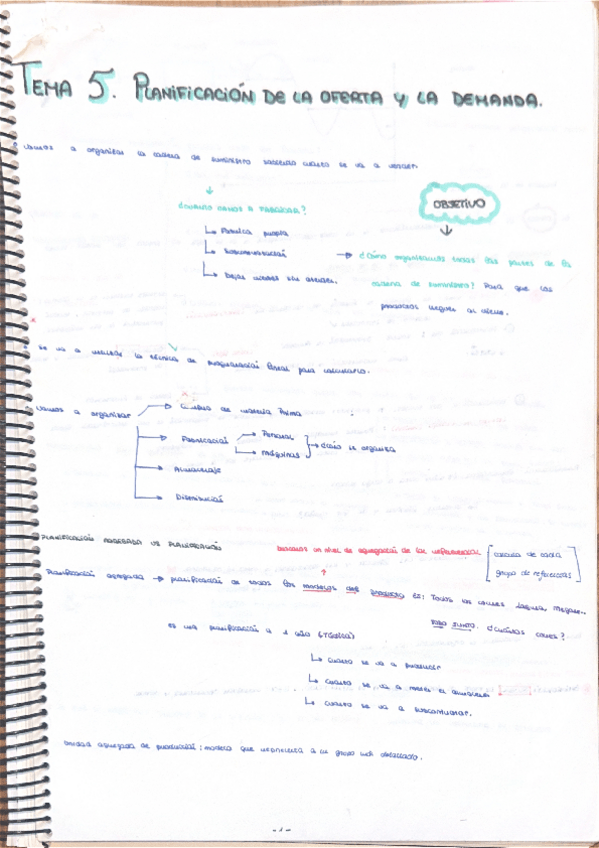 TEMA 5. PLANIFICACIÓN DE LA OFERTA Y LA DEMANDA.
Vamos a organizar la cadena de suministro sabiendo cuánto se va a vender.
¿CUÁNTO VAMOS A FABRICAR?
OBJETIVO
Fábrica propia
Subcontratación
Dejar clientes sin atender.
¿Cómo organizamos todas las partes de la
cadena de suministro? Para que los
productos lleguen al cliente.
se va a utilizar la técnica de programación lineal para calcularlo.
Vamos a organizar
Compra de materia Prima
Fabricación
Personal
Máquinas
cómo se organiza
Almacenaje
Distribución
PLANIFICACIÓN AGREGADA VS PLANIFICACIÓN
buscamos un nivel de agregación de las referencias
cálculo de cada
grupo de referencias
Planificación agregada → planificación de todos los modelos del producto Ej: Todos los coches Laguna, Megane..
TODO JUNTO. ¿Cuántos coches?
es una planificación a 1 año (Táctica)
cuánto se va a producir
cuánto se va a meter al almacén
cuánto se va a subcontratar.
Unidad agregada de producción: modelo que representa a un grupo
-1-